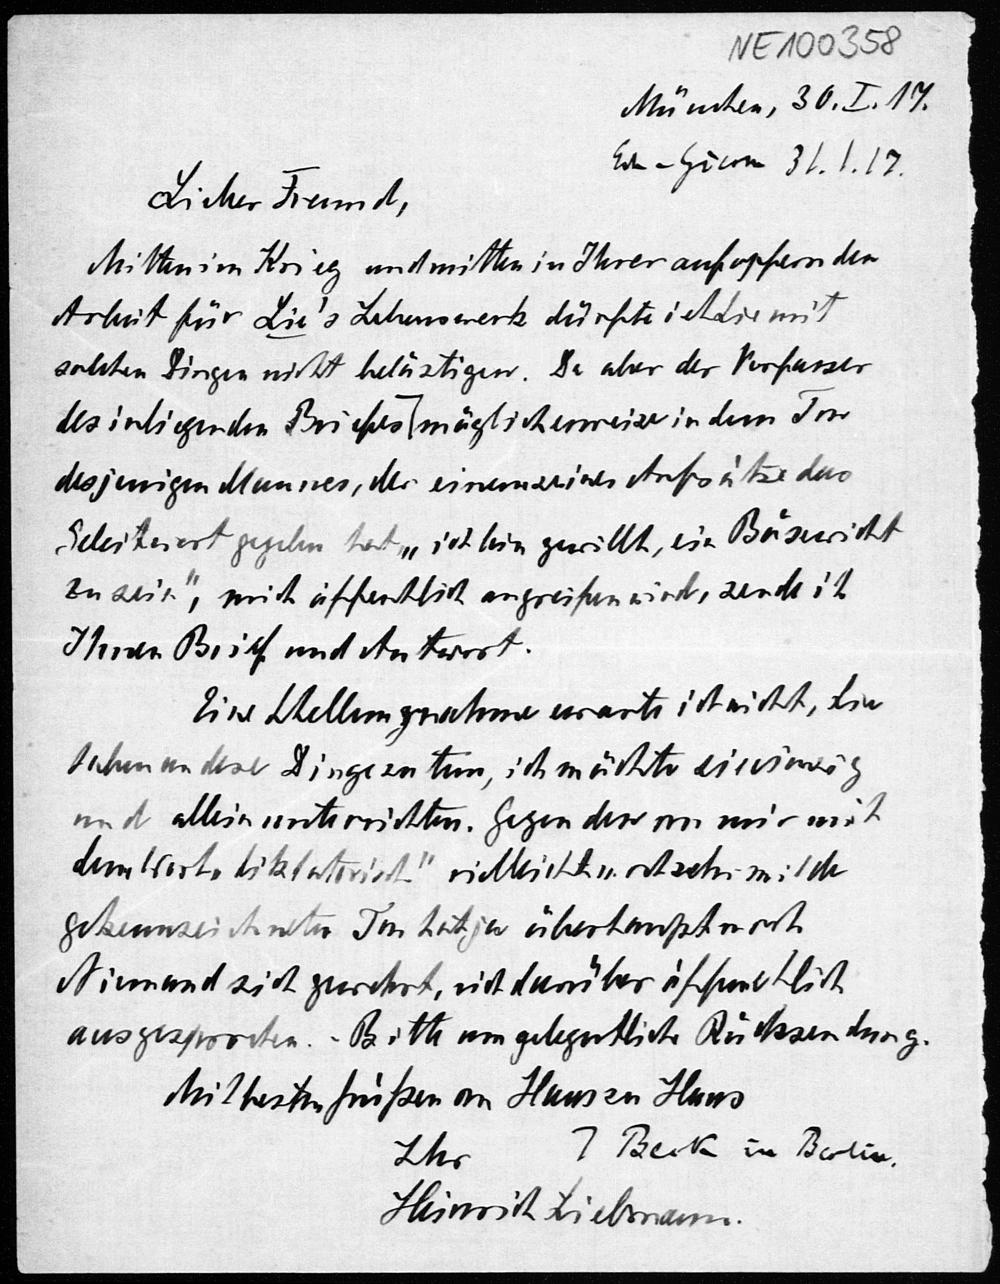 NE100358
München, 30. I. 17.
31. I. 17.
Lieber Freund,
Mitten im Krieg und mitten in Ihrer aufopfernden
Arbeit für Lie's Lebenswerk dürfte ich Sie mit
solchen Dingen nicht belästigen. Da aber der Verfasser
des inliegenden Briefes⌉ möglicherweise in dem Ton
desjenigen Mannes, der einem seiner Aufsätze das
Geleitwort gegeben hat „ich bin gewillt, ein Bösewicht
zu sein", mich öffentlich angreifen wird, sende ich
Ihnen Brief und Antwort.
Eine Stellungnahme erwarte ich nicht, Sie
haben andere Dinge zu tun, ich möchte Sie einzig
und allein unterrichten. Gegen den von mir mit
dem Wort „diktatorisch" vielleicht noch sehr milde
gekennzeichneten Ton hat ja überhaupt noch
Niemand sich gewehrt, sich darüber öffentlich
ausgesprochen. - Bitte um gelegentliche Rücksendung.
Mit besten Grüßen von Haus zu Haus
Ihr
⌉ Beck in Berlin.
Heinrich Liebmann.